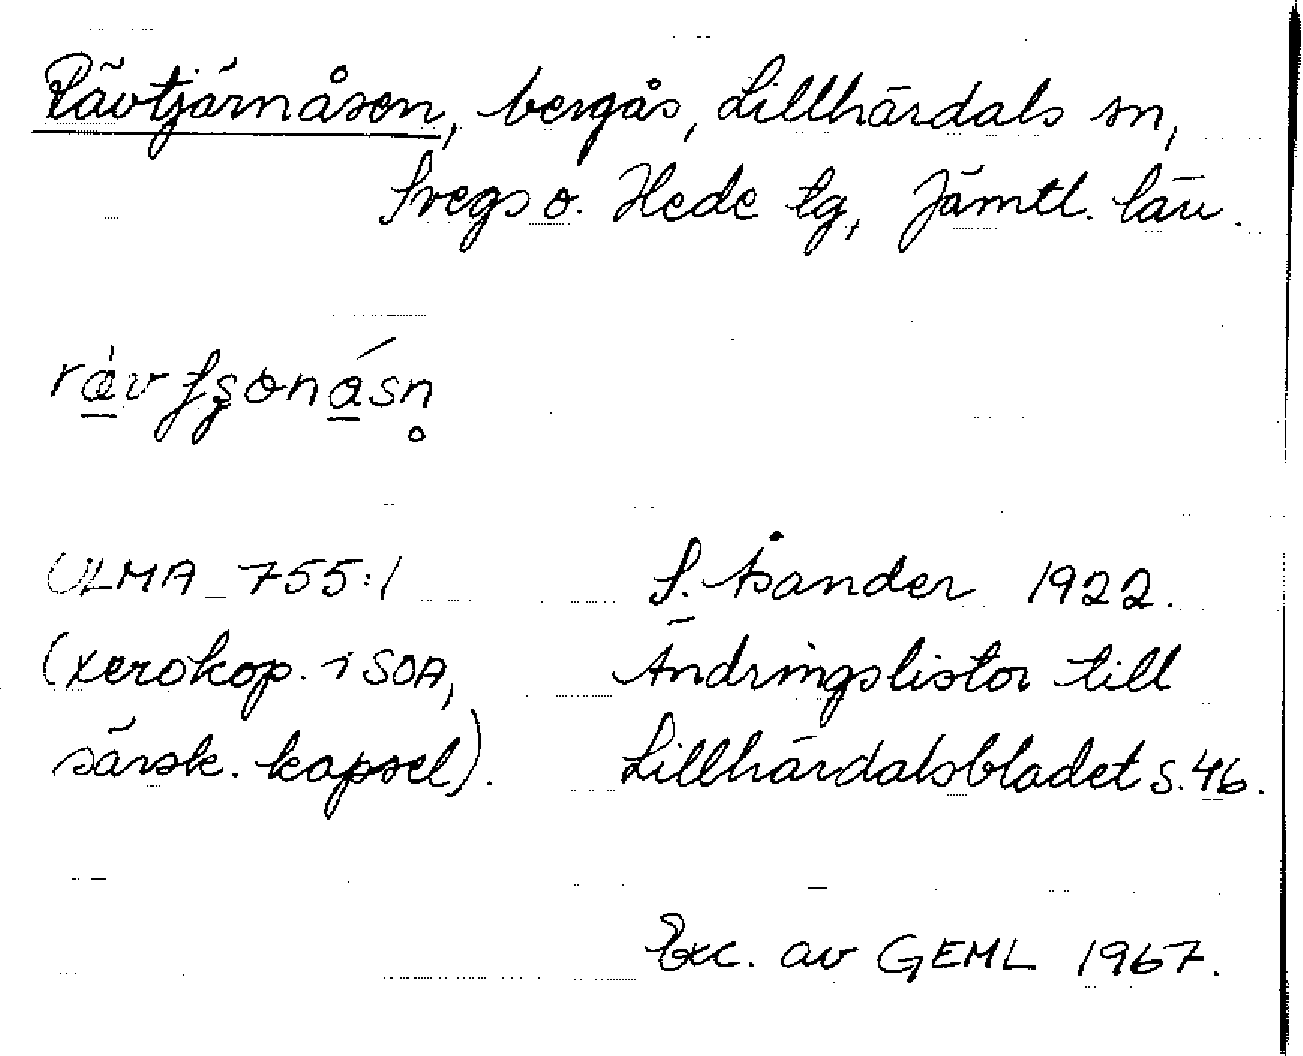 Rävtjärnåsen, bergås, Lillhärdals sn,
Svegs o. Hede tg, Jämtl. län.
ULMA 755:1 S. Åsander 1922.
(xerokop. i SOA, Ändringslistor till
särsk. kapsel). Lillhärdalsbladet s. 46.
Exc. av GEML 1967.